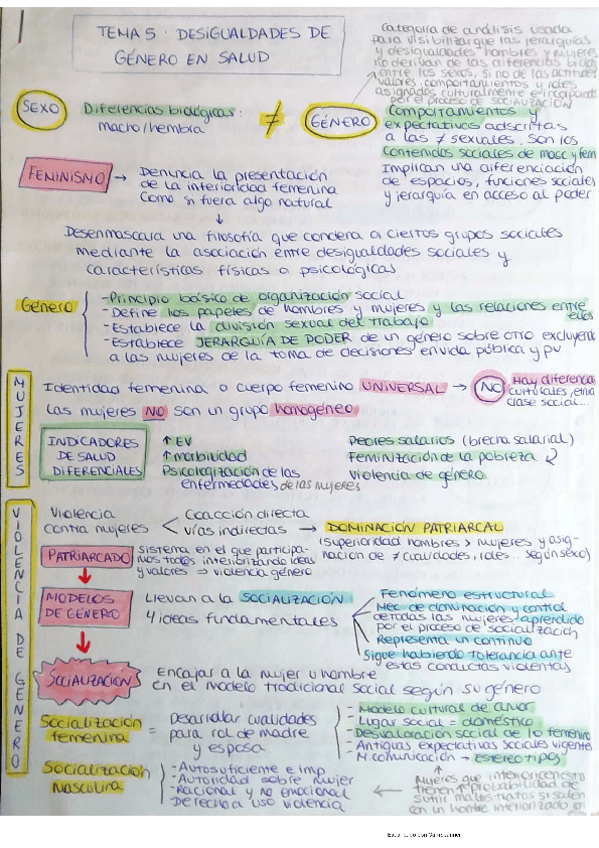 TEMA 5 · DESIGUALDADES DE
GÉNERO EN SALUD
Categoría de análisis usada
para visibilizar que las jerarquías
y desigualdades hombres y mujeres
no derivan de las diferencias bioló
entre los sexos, si no de las actitudes
valores comportamientos y roles
asignados culturalmente e
por el proceso de SOCIALIZACIÓN
SEXO
Diferencias biológicas:
macho/hembra
≠
GÉNERO
Comportamientos y
expectativas adscritas
a las ≠ sexuales. Son los
contenidos sociales de masc y fem
Implican una diferenciación
de espacios, funciones sociales
y jerarquía en acceso al poder
FEMINISMO → Denuncia la presentación
de la interioridad femenina
como si fuera algo natural
↓
Desenmascara una filosofía que condena a ciertos grupos sociales
mediante la asociación entre desigualdades sociales y
características físicas o psicológicas
Género
- Principio básico de organización social
- Define los papeles de hombres y mujeres y las relaciones entre
ellos
- Establece la división sexual del trabajo
- Establece JERARQUÍA DE PODER de un género sobre otro excluyent
a las mujeres de la toma de decisiones en vida pública y pv
MUJERES
Identidad femenina o cuerpo femenino UNIVERSAL → NO Hay diferencia
culturales, etnia
clase social...
Las mujeres NO son un grupo homogéneo
INDICADORES
DE SALUD
DIFERENCIALES
↑ EV
↑ morbilidad
Psicologización de las
enfermedades de las mujeres
Peores salarios (brecha salarial)
Feminización de la pobreza
Violencia de género
VIOLENCIA DE GÉNERO
Violencia
contra mujeres
Coacción directa
vías indirectas → DOMINACIÓN PATRIARCAL
(superioridad hombres > mujeres y asig-
nación de ≠ cualidades, roles... según sexo)
PATRIARCADO
sistema en el que participa-
mos todos interiorizando ideas
y valores ⇒ violencia género
MODELOS
DE GÉNERO
Llevan a la SOCIALIZACIÓN
4 ideas fundamentales
Fenómeno estructural
Mec de dominación y control
de todas las mujeres aprendido
por el proceso de socialización
Representa un continuo
Sigue habiendo tolerancia ante
estas conductas violentas
SOCIALIZACIÓN
Encajar a la mujer u hombre
en el modelo tradicional social según su género
Socialización
femenina
= Desarrollar cualidades
para rol de madre
y esposa
- Modelo cultural de amor
- Lugar social = doméstico
- Desvaloración social de lo femenino
- Antiguas expectativas sociales vigentes
- M comunicación → estereotipos
Socialización
masculina
- Autosuficiente e imp.
- Autoridad sobre mujer
- Racional y no emocional
Derecho a uso violencia
Mujeres que interioricen esto
tienen ↑ probabilidad de
sufrir malos tratos si salen
con un hombre interiorizado en